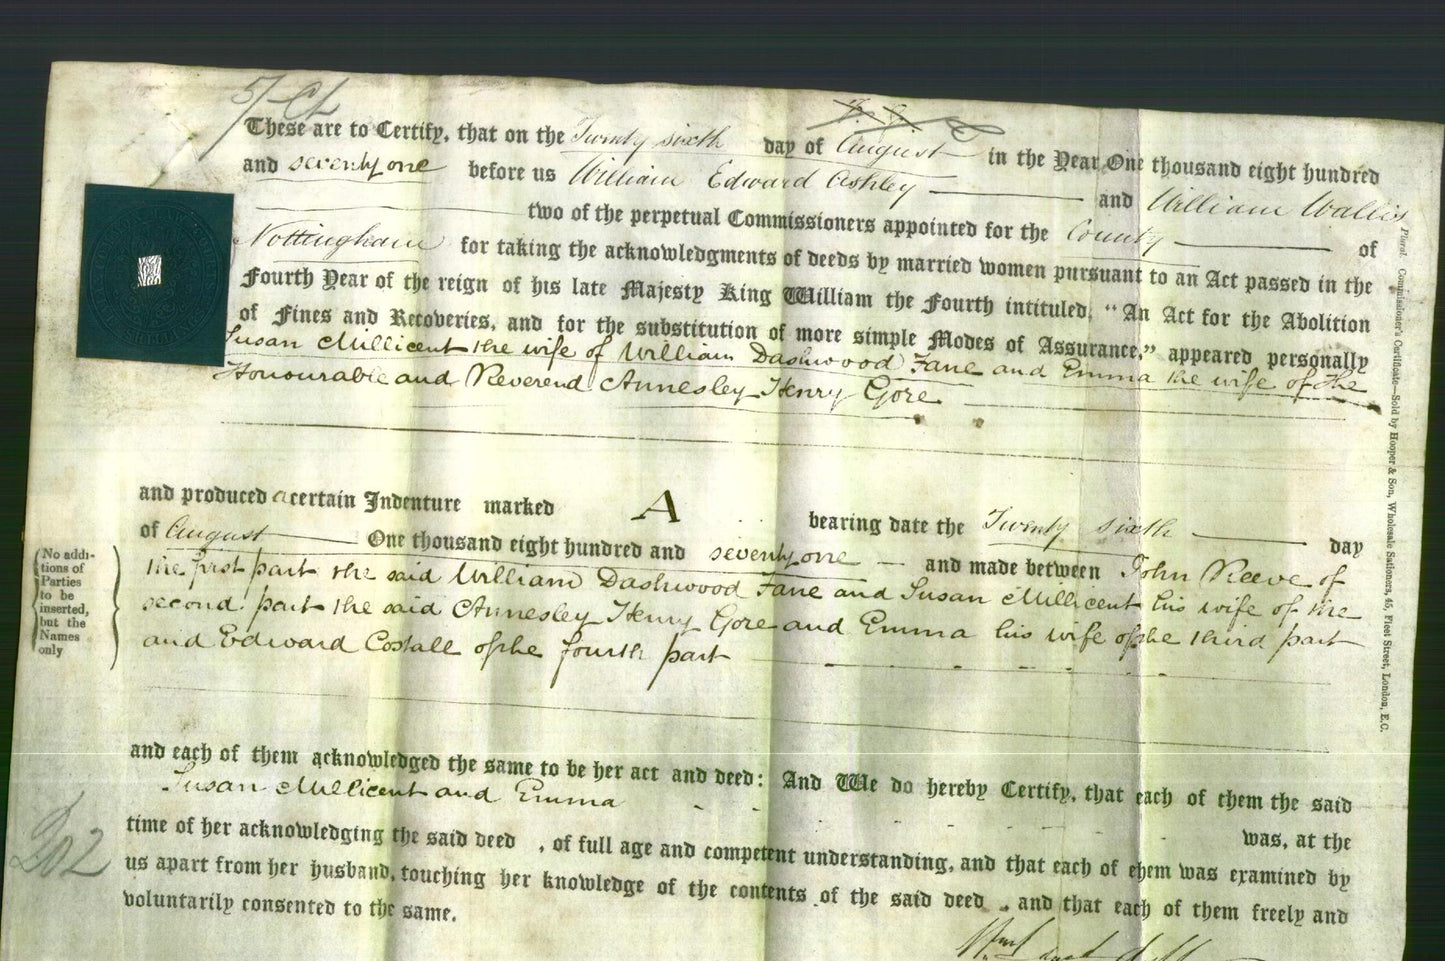 5/-
These are to Certify, that on the Twenty sixth day of August in the Year One thousand eight hundred
and seventy one before us William Edward Ashley and William Wallis
two of the perpetual Commissioners appointed for the County of
Nottingham for taking the acknowledgments of deeds by married women pursuant to an Act passed in the
Fourth Year of the reign of his late Majesty King William the Fourth intituled, “An Act for the Abolition
of Fines and Recoveries, and for the substitution of more simple Modes of Assurance,” appeared personally
Susan Millicent the wife of William Dashwood Fane and Emma the wife of the
Honourable and Reverend Annesley Henry Gore
and produced a certain Indenture marked A bearing date the Twenty sixth day
of August One thousand eight hundred and seventy one and made between John Reeve of
the first part the said William Dashwood Fane and Susan Millicent his wife of the
second part the said Annesley Henry Gore and Emma his wife of the third part
and Edward Costall of the fourth part
No addi-
tions of
Parties
to be
inserted,
but the
Names
only
and each of them acknowledged the same to be her act and deed: And We do hereby Certify, that each of them the said
Susan Millicent and Emma was, at the
time of her acknowledging the said deed , of full age and competent understanding, and that each of them was examined by
us apart from her husband, touching her knowledge of the contents of the said deed , and that each of them freely and
voluntarily consented to the same.
202
Plural. Commissioner's Certificate—Sold by Hooper & Son, Wholesale Stationers, 45, Fleet Street, London, E.C.